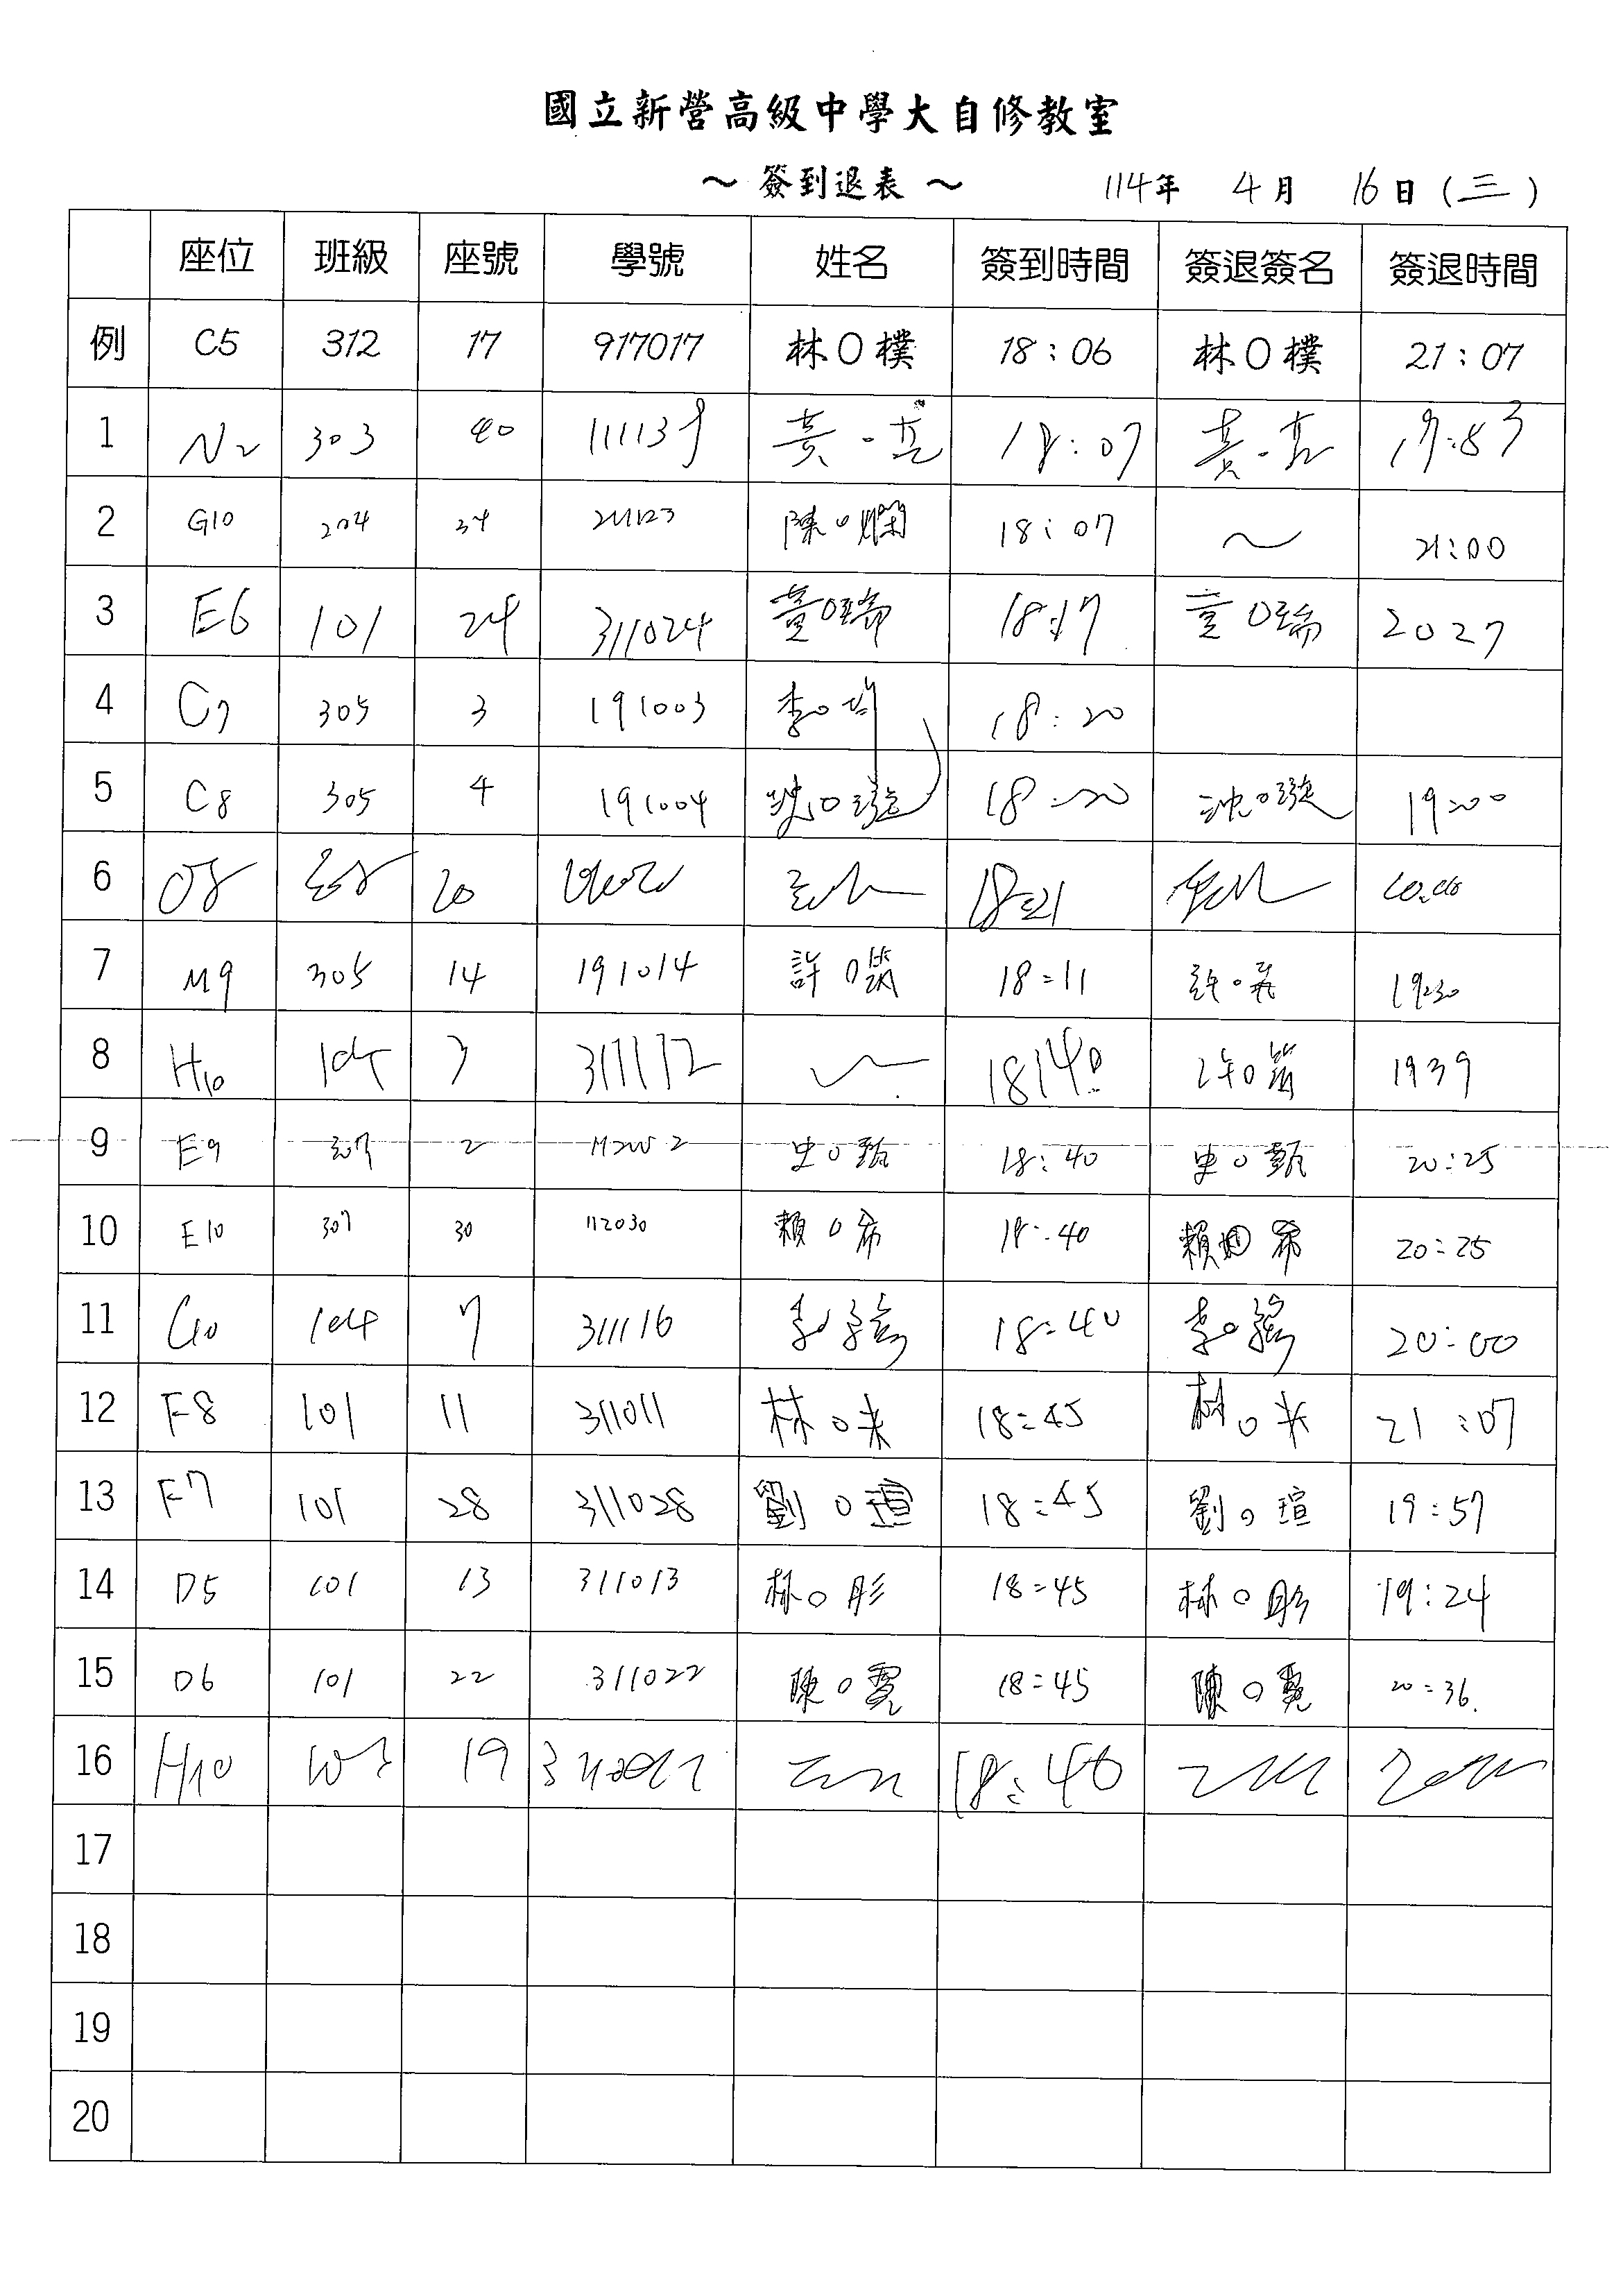 國立新營高級中學大自修教室
～ 簽到退表 ～ 114年 4月 16日 (三)
座位 班級 座號 學號 姓名 簽到時間 簽退簽名 簽退時間
例 C5 312 17 917017 林O樸 18:06 林O樸 21:07
1 N2 303 40 111139 黃 18:07 黃
2 G10 204 34 陳O嫻 18:07 21:00
3 E6 101 24 311024 黃O瑞 18:17 黃O瑞 2027
4 C7 305 3 191003 李O均 18:20
5 C8 305 4 191004 沈O璇 18:20 沈O璇 19:00
6 O8 20 18:21
7 M9 305 14 191014 許O 18:11 許O 19:30
8 H10 104 3 311112 1840 許O 1939
9 E9 307 2 史O甄 18:40 史O甄 20:25
10 E10 307 30 112030 賴O希 18:40 賴 希 20:25
11 G10 104 7 311116 李O 18:40 李O 20:00
12 F8 101 11 311011 林O米 18:45 林O米 21:07
13 F7 101 28 311028 劉O瑄 18:45 劉O瑄 19:57
14 D5 101 13 311013 林O彤 18:45 林O彤 19:24
15 D6 101 22 311022 陳O霓 18:45 陳O霓 20:36
16 H10 103 19 18:40
17
18
19
20